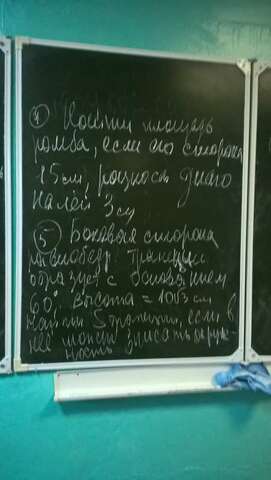 ④ Найти площадь
ромба, если его сторона
15см, разность диаго
налей 3см
⑤ Боковая сторона
равнобедр. трапеции
образует с основанием
60°, высота = 10√3 см
найти S трапеции, если в
нее можно вписать окруж-
ность